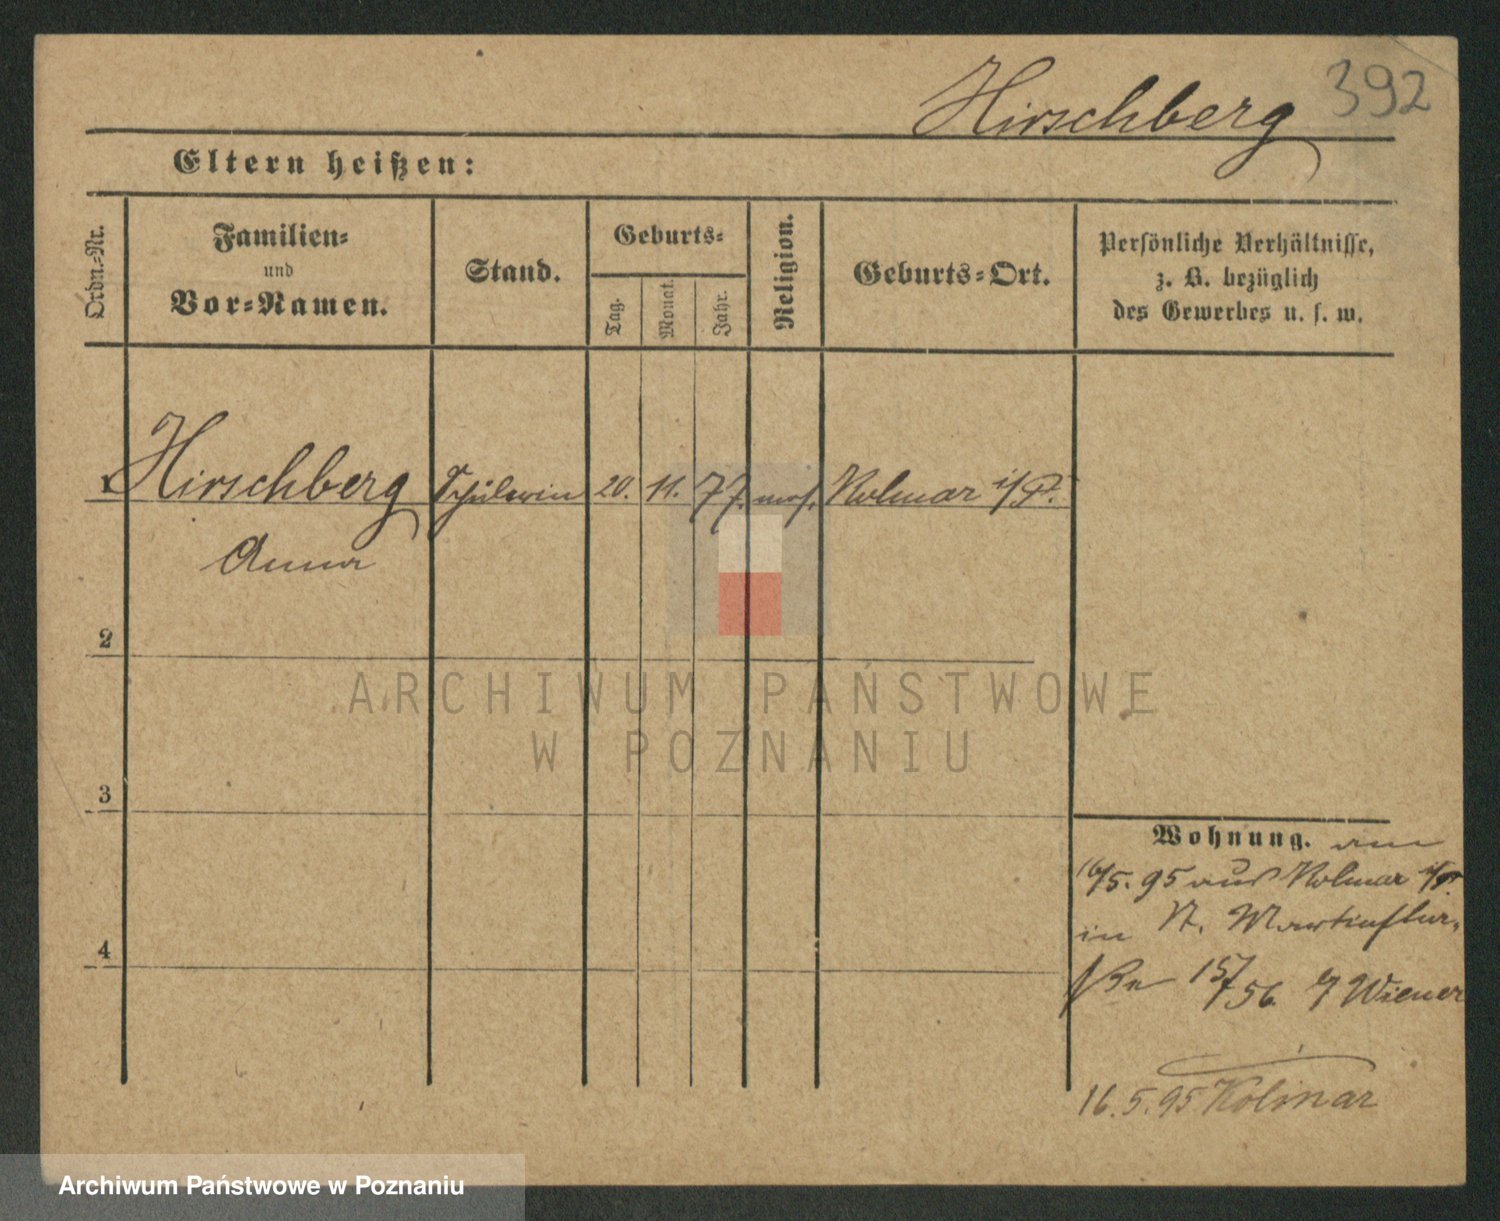 392
Hirschberg
Eltern heißen:
Ordn.-Nr.
Familien-
und
Vor-Namen.
Stand.
Geburts-
Tag.
Monat.
Jahr.
Religion.
Geburts-Ort.
Persönliche Verhältnisse,
z. B. bezüglich
des Gewerbes u. s. w.
1 Hirschberg Schülerin 20. 11. 77. mos. Kolmar i/P.
Anna
2
ARCHIWUM PAŃSTWOWE
W POZNANIU
3
Wohnung. am
16/5. 95 aus Kolmar i/P.
in St. Martinstra-
4
ße 157/56. Wiener
16.5.95 Kolmar
Archiwum Państwowe w Poznaniu